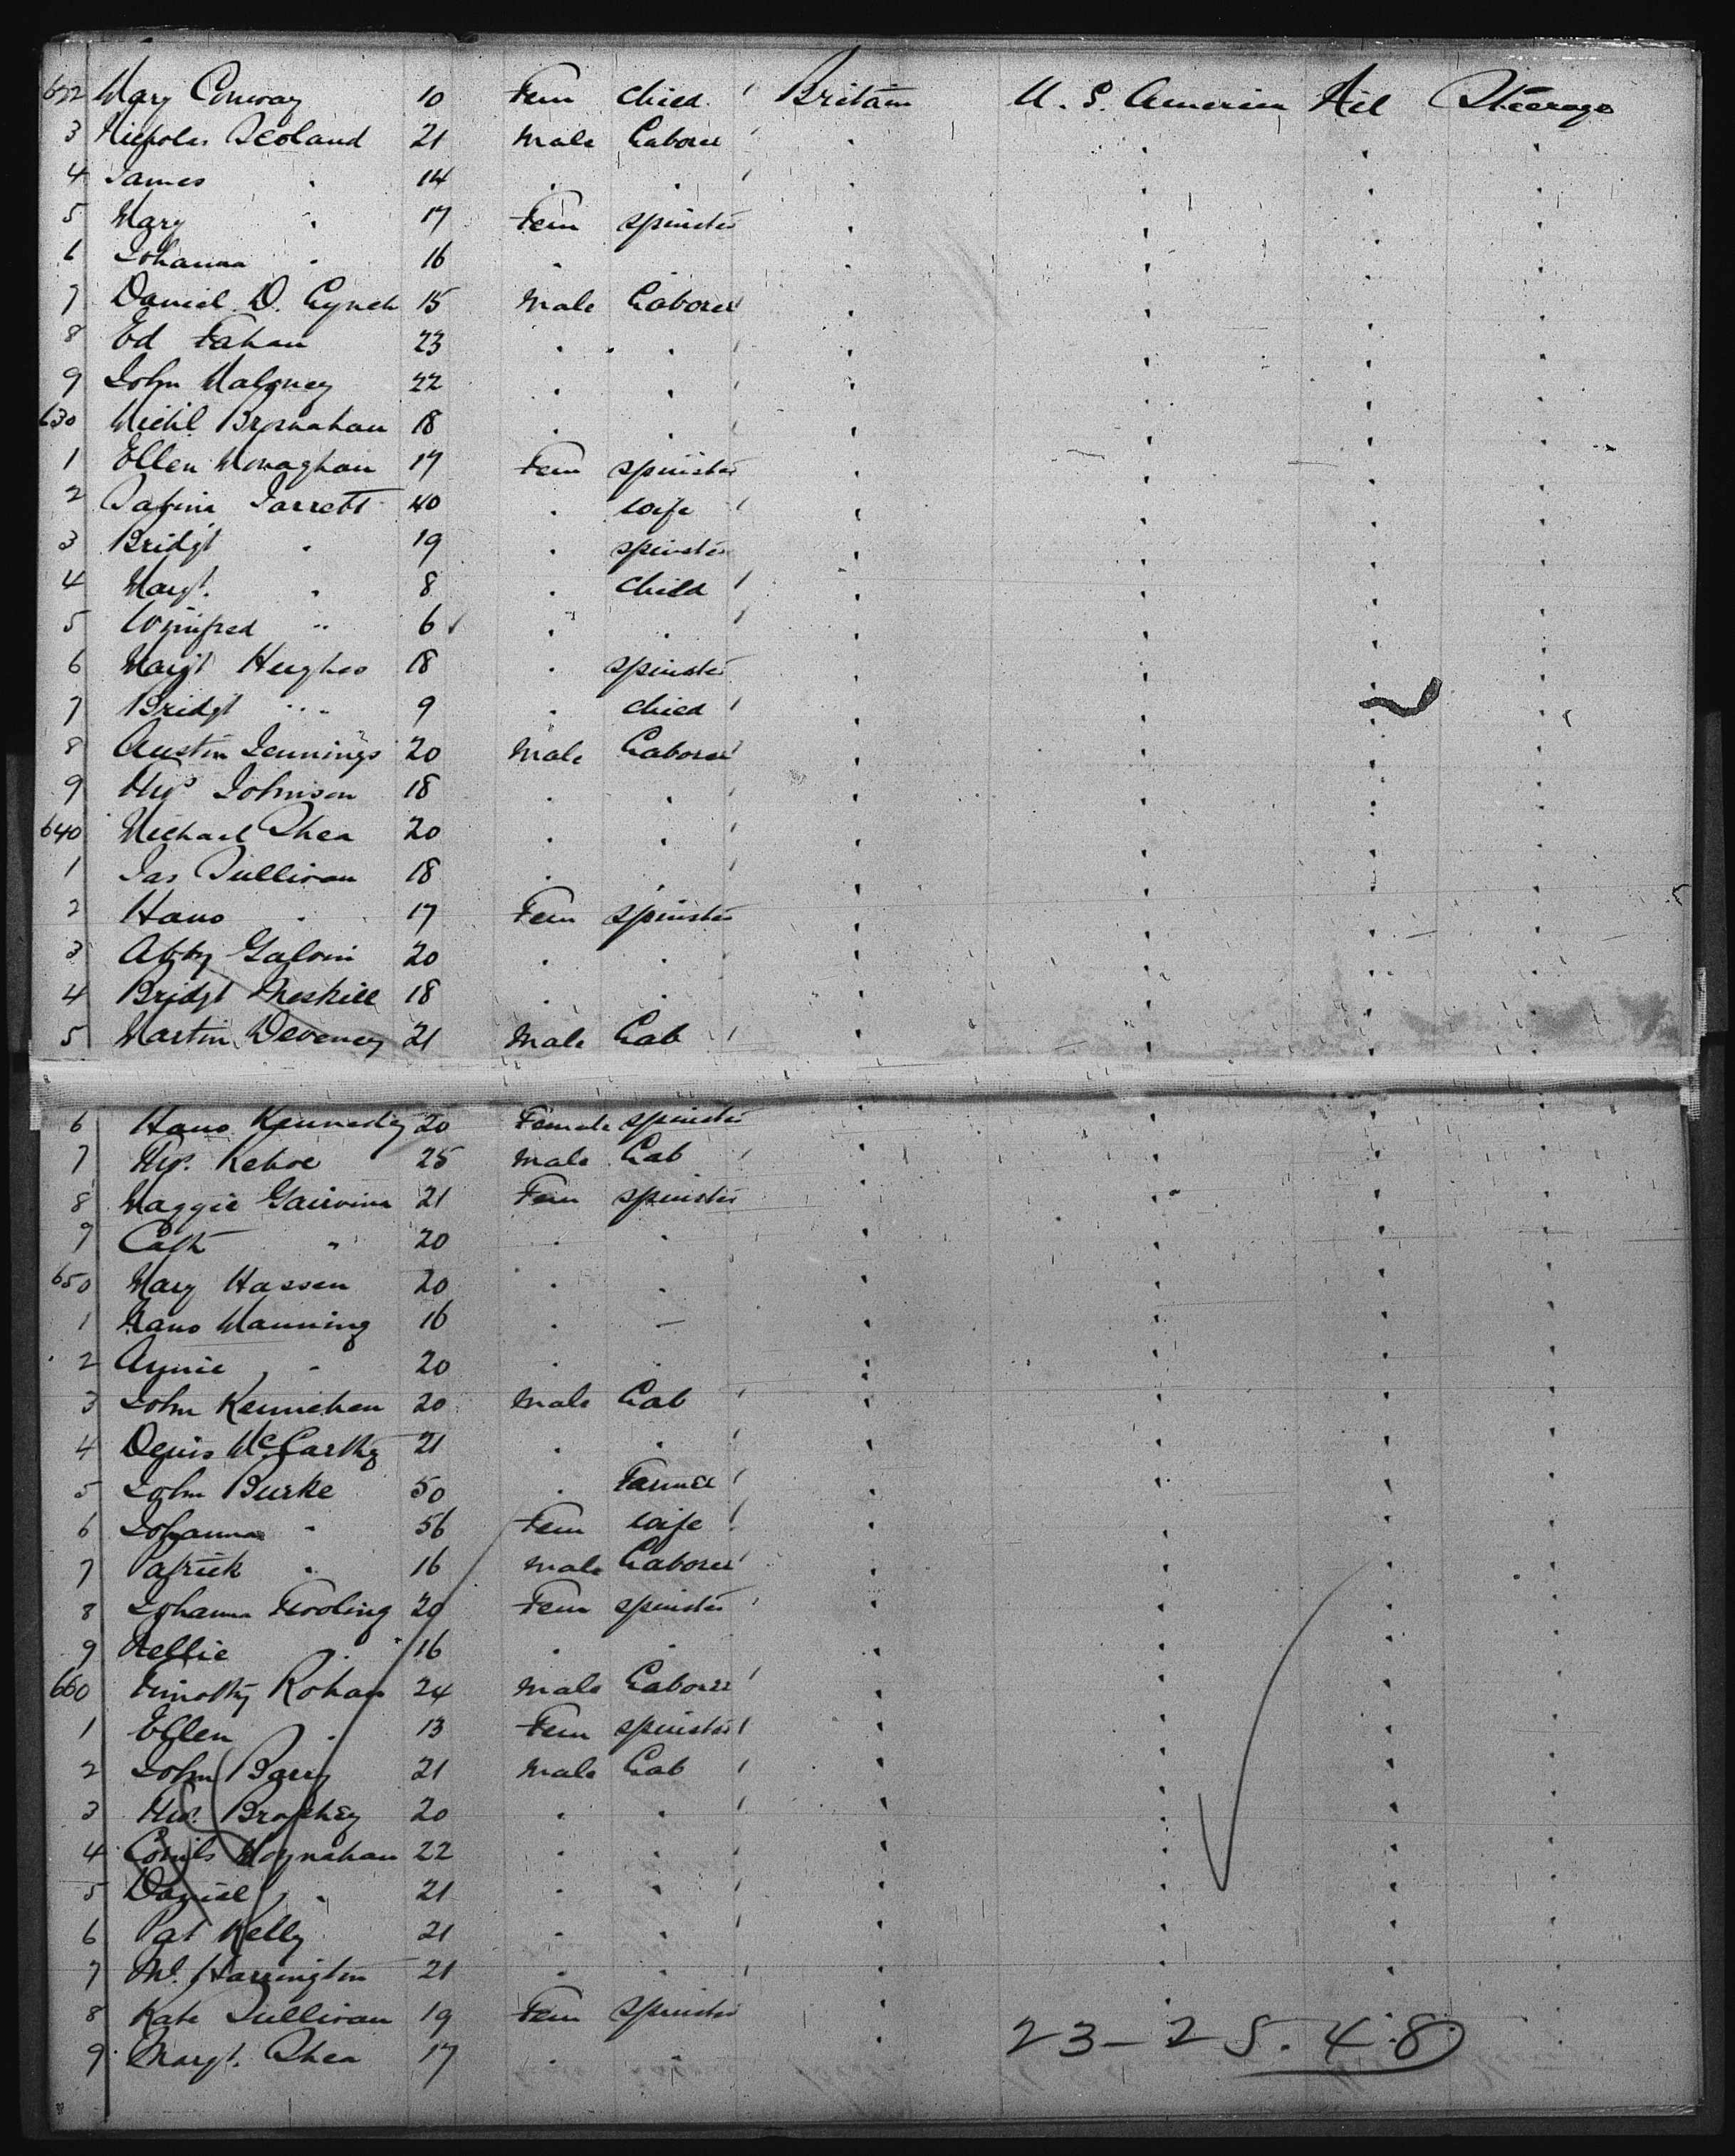 622 Mary Conway 10 Fem Child ' Britain U.S. America Nil Steerage
3 Nicholas Scoland 21 Male Laborer '
4 James " 14 " " '
5 Mary " 17 Fem Spinster
6 Johanna " 16 " "
7 Daniel D. Lynch 15 Male Laborer '
8 Ed Fahan 23 " " '
9 John Maloney 22 " " '
630 Michl Brosnahan 18 " " '
1 Ellen Monaghan 17 Fem Spinster
2 Sabina Jarrett 40 " Wife '
3 Bridgt " 19 " Spinster
4 Margt. " 8 " Child '
5 Winifred " 6 " " '
6 Margt Hughes 18 " Spinster
7 Bridgt " 9 " Child '
8 Austin Jennings 20 Male Laborer '
9 Johnson 18 " " '
640 Michael Shea 20 " " '
1 Jas Sullivan 18 " " '
2 Hano " 17 Fem Spinster
3 Abby Galvin 20 " "
4 Bridgt Meskill 18 " "
5 Martin Deveney 21 Male Lab '
6 Hano Kennedy 20 Female Spinster
7 Kehoe 25 Male Lab '
8 Maggie 21 Fem Spinster
9 Cath " 20 " "
650 Mary Hassen 20 " "
1 Hano Manning 16 " "
2 Annie " 20 " "
3 John Kennehen 20 Male Lab '
4 Denis McCarthy 21 " " '
5 John Burke 50 " Farmer '
6 Johanna " 56 Fem Wife '
7 Patrick " 16 Male Laborer '
8 Johanna 20 Fem Spinster '
9 Nellie " 16 " "
660 Timothy Rohan 24 Male Laborer '
1 Ellen " 13 Fem Spinster '
2 John Barry 21 Male Lab '
3 Brophey 20 " " '
4 Cornls Moynahan 22 " " '
5 Daniel " 21 " " '
6 Pat Kelly 21 " " '
7 Ml. Harrington 21 " " '
8 Kate Sullivan 19 Fem Spinster
9 Margt. Shea 17 " "
23-25.48